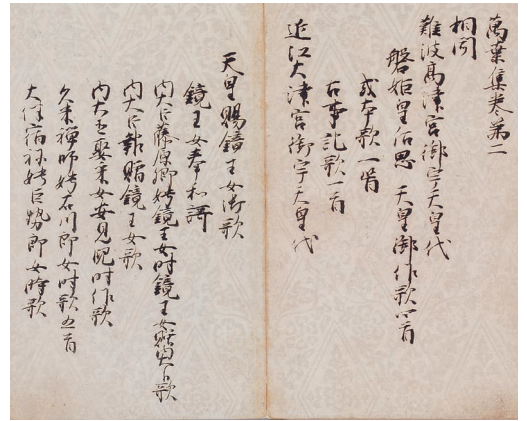 萬葉集卷第二
相聞
難波高津宮御宇天皇代
磐姫皇后思 天皇御作歌四首
或本歌一首
古事記歌一首
近江大津宮御宇天皇代
天皇賜鏡王女御歌
鏡王女奉和謌
内大臣藤原卿娉鏡王女時鏡王女贈内歌
内大臣報贈鏡王女歌
内大臣娶采女安見児時作歌
久米禅師娉石川郎女時歌五首
大伴宿祢娉巨勢郎女時歌